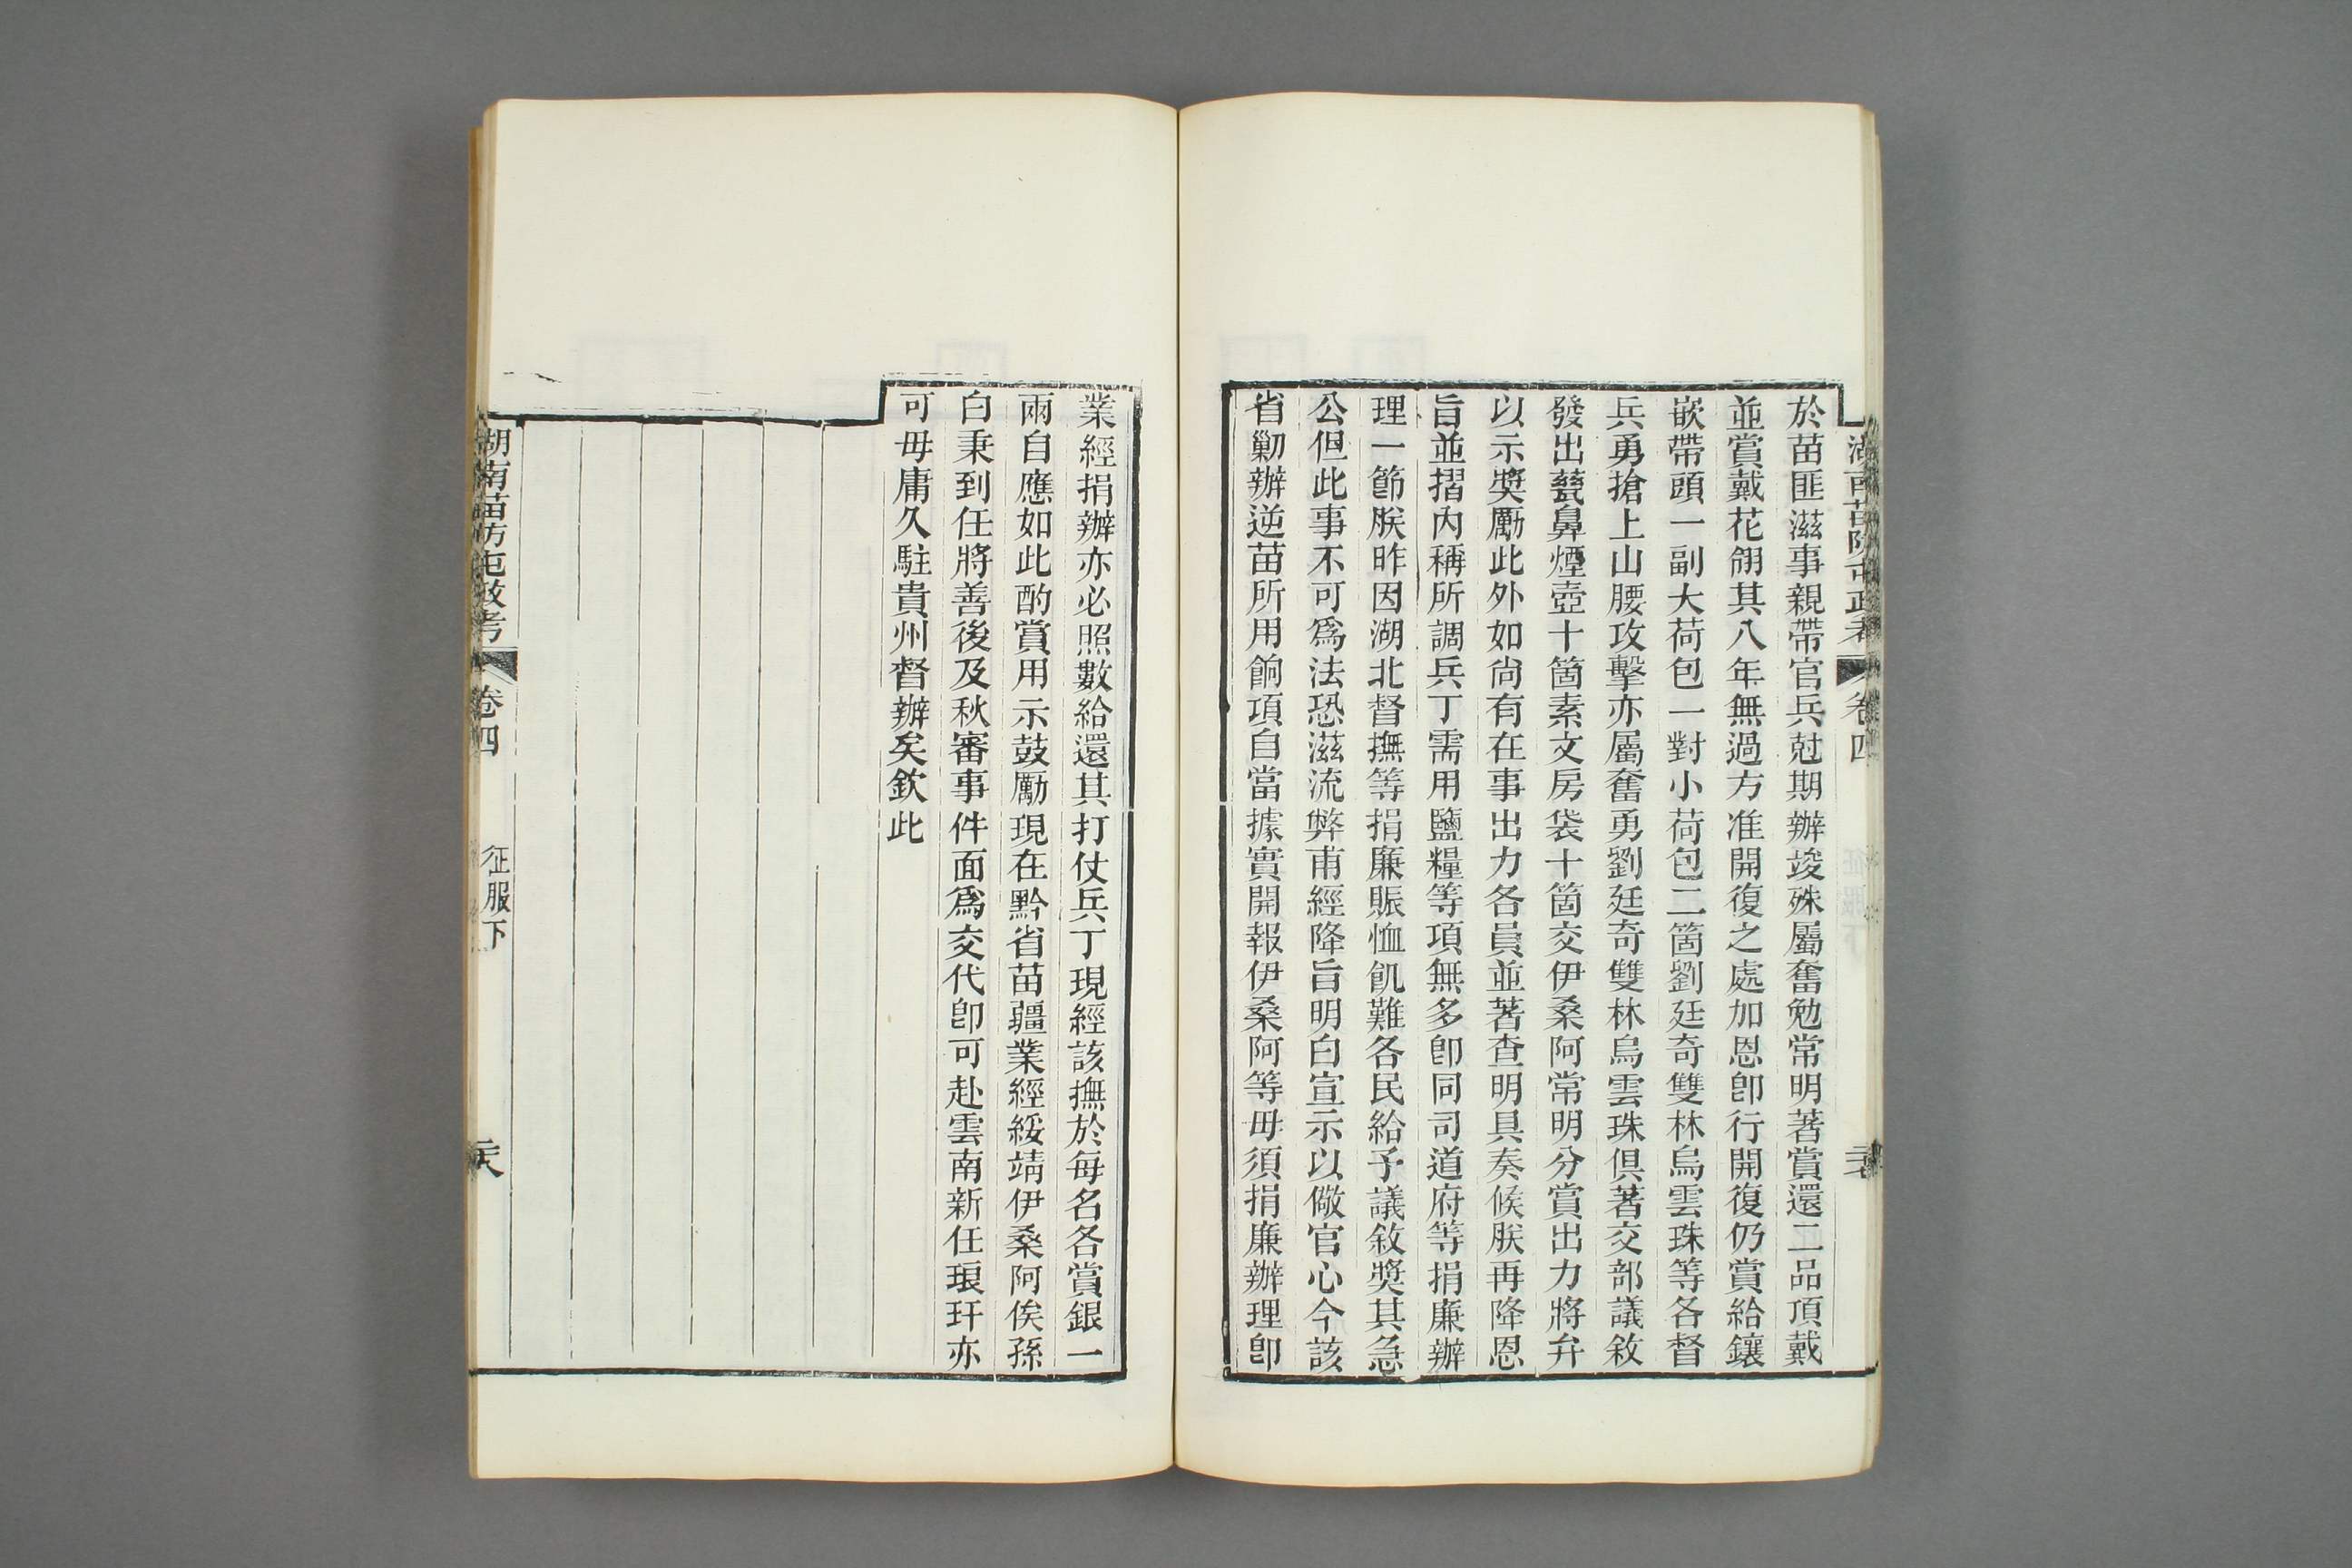 湖南苗防屯政考
卷四
於苗匪滋事親帶官兵尅期辦竣殊屬奮勉常明著賞還二品頂戴
並賞戴花翎其八年無過方准開復之處加恩卽行開復仍賞給鑲
嵌帶頭一副大荷包一對小荷包二箇劉廷奇雙林烏雲珠等各督
兵勇搶上山腰攻擊亦屬奮勇劉廷奇雙林烏雲珠俱著交部議敘
發出甆鼻煙壺十箇素文房袋十箇交伊桑阿常明分賞出力將弁
以示獎勵此外如尙有在事出力各員並著查明具奏候朕再降恩
旨並摺內稱所調兵丁需用鹽糧等項無多卽同司道府等捐廉辦
理一節朕昨因湖北督撫等捐廉賑恤飢難各民給予議敘獎其急
公但此事不可爲法恐滋流弊甫經降旨明白宣示以儆官心今該
省勦辦逆苗所用餉項自當據實開報伊桑阿等毋須捐廉辦理卽
業經捐辦亦必照數給還其打仗兵丁現經該撫於每名各賞銀一
兩自應如此酌賞用示鼓勵現在黔省苗疆業經綏靖伊桑阿俟孫
曰秉到任將善後及秋審事件面爲交代卽可赴雲南新任琅玕亦
可毋庸久駐貴州督辦矣欽此
湖南苗防屯政考
卷四
征服下